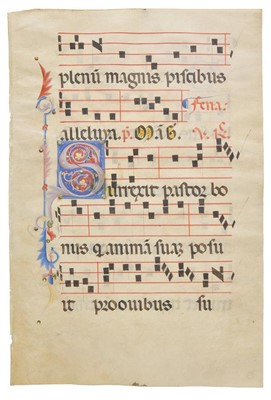 plenū magnis piscibus
alleluya. feria.
Surrexit pastor bo
nus q animā suaʒ posu
it pro ouibus su